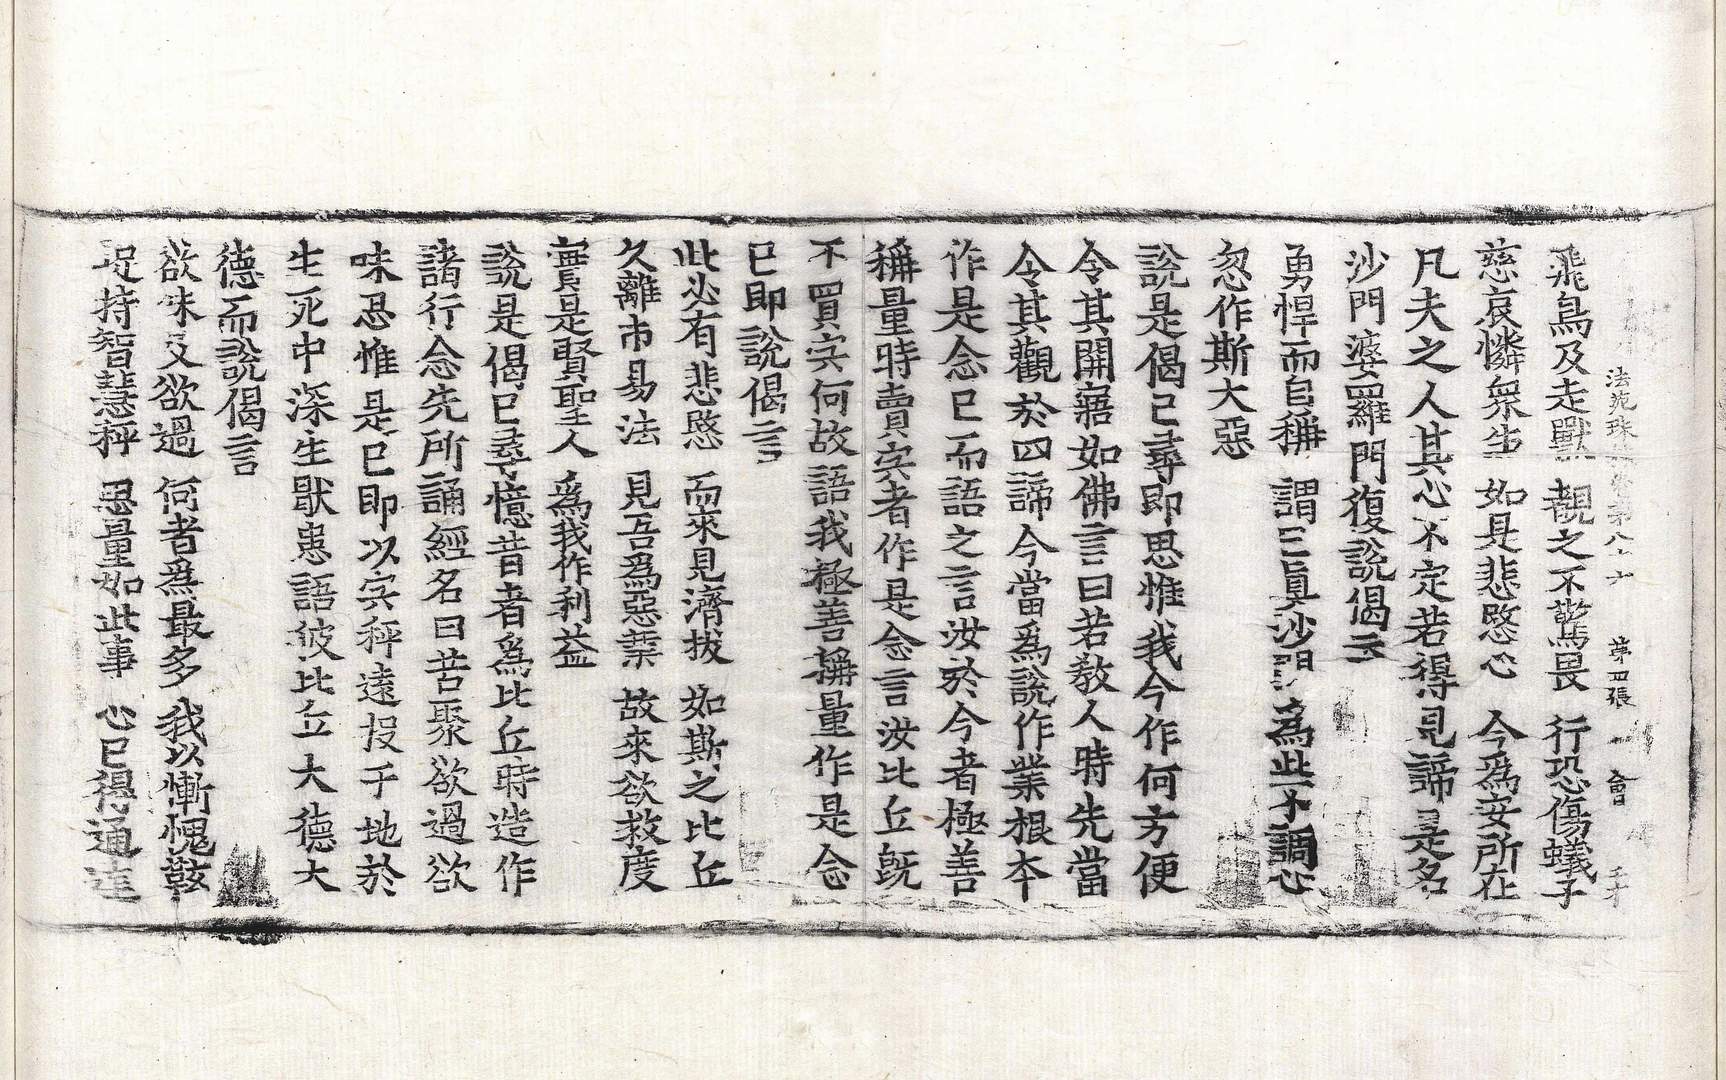 法苑珠 第八十六 第四張 會
飛鳥及走獸 覩之不驚畏 行恐傷蟻子
慈哀憐衆生 如是悲愍心 今爲安所在
凡夫之人其心不定若得見諦是名
沙門婆羅門復說偈云
勇悍而自稱 謂己眞沙門 爲此不調心
忽作斯大惡
說是偈已尋即思惟我今作何方便
令其開寤如佛言曰若教人時先當
令其觀於四諦今當爲說作業根本
作是念已而語之言汝於今者極善
稱量時賣宍者作是念言汝比丘旣
不買宍何故語我極善稱量作是念
已即說偈言
此必有悲愍 而來見濟拔 如斯之比丘
久離市易法 見吾爲惡業 故來欲救度
實是賢聖人 爲我作利益
說是偈已尋憶昔者爲比丘時造作
諸行念先所誦經名曰苦聚欲過欲
味思惟是已即以宍秤遠投于地於
生死中深生猒患語彼比丘大德大
德而說偈言
欲味及欲過 何者爲最多 我以慚愧鞍
捉持智慧秤 思量如此事 心已得通達